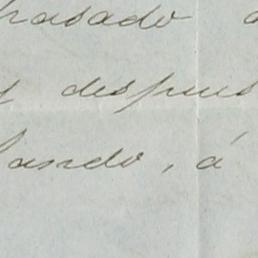 trasado
y despues
lando, á